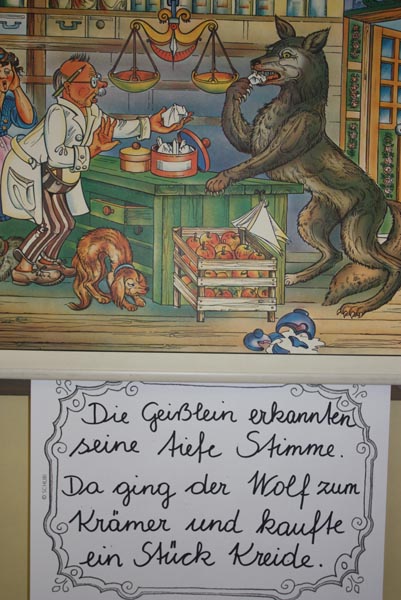 Die Geißlein erkannten
seine tiefe Stimme.
Da ging der Wolf zum
Krämer und kaufte
ein Stück Kreide.
© SCHUBI